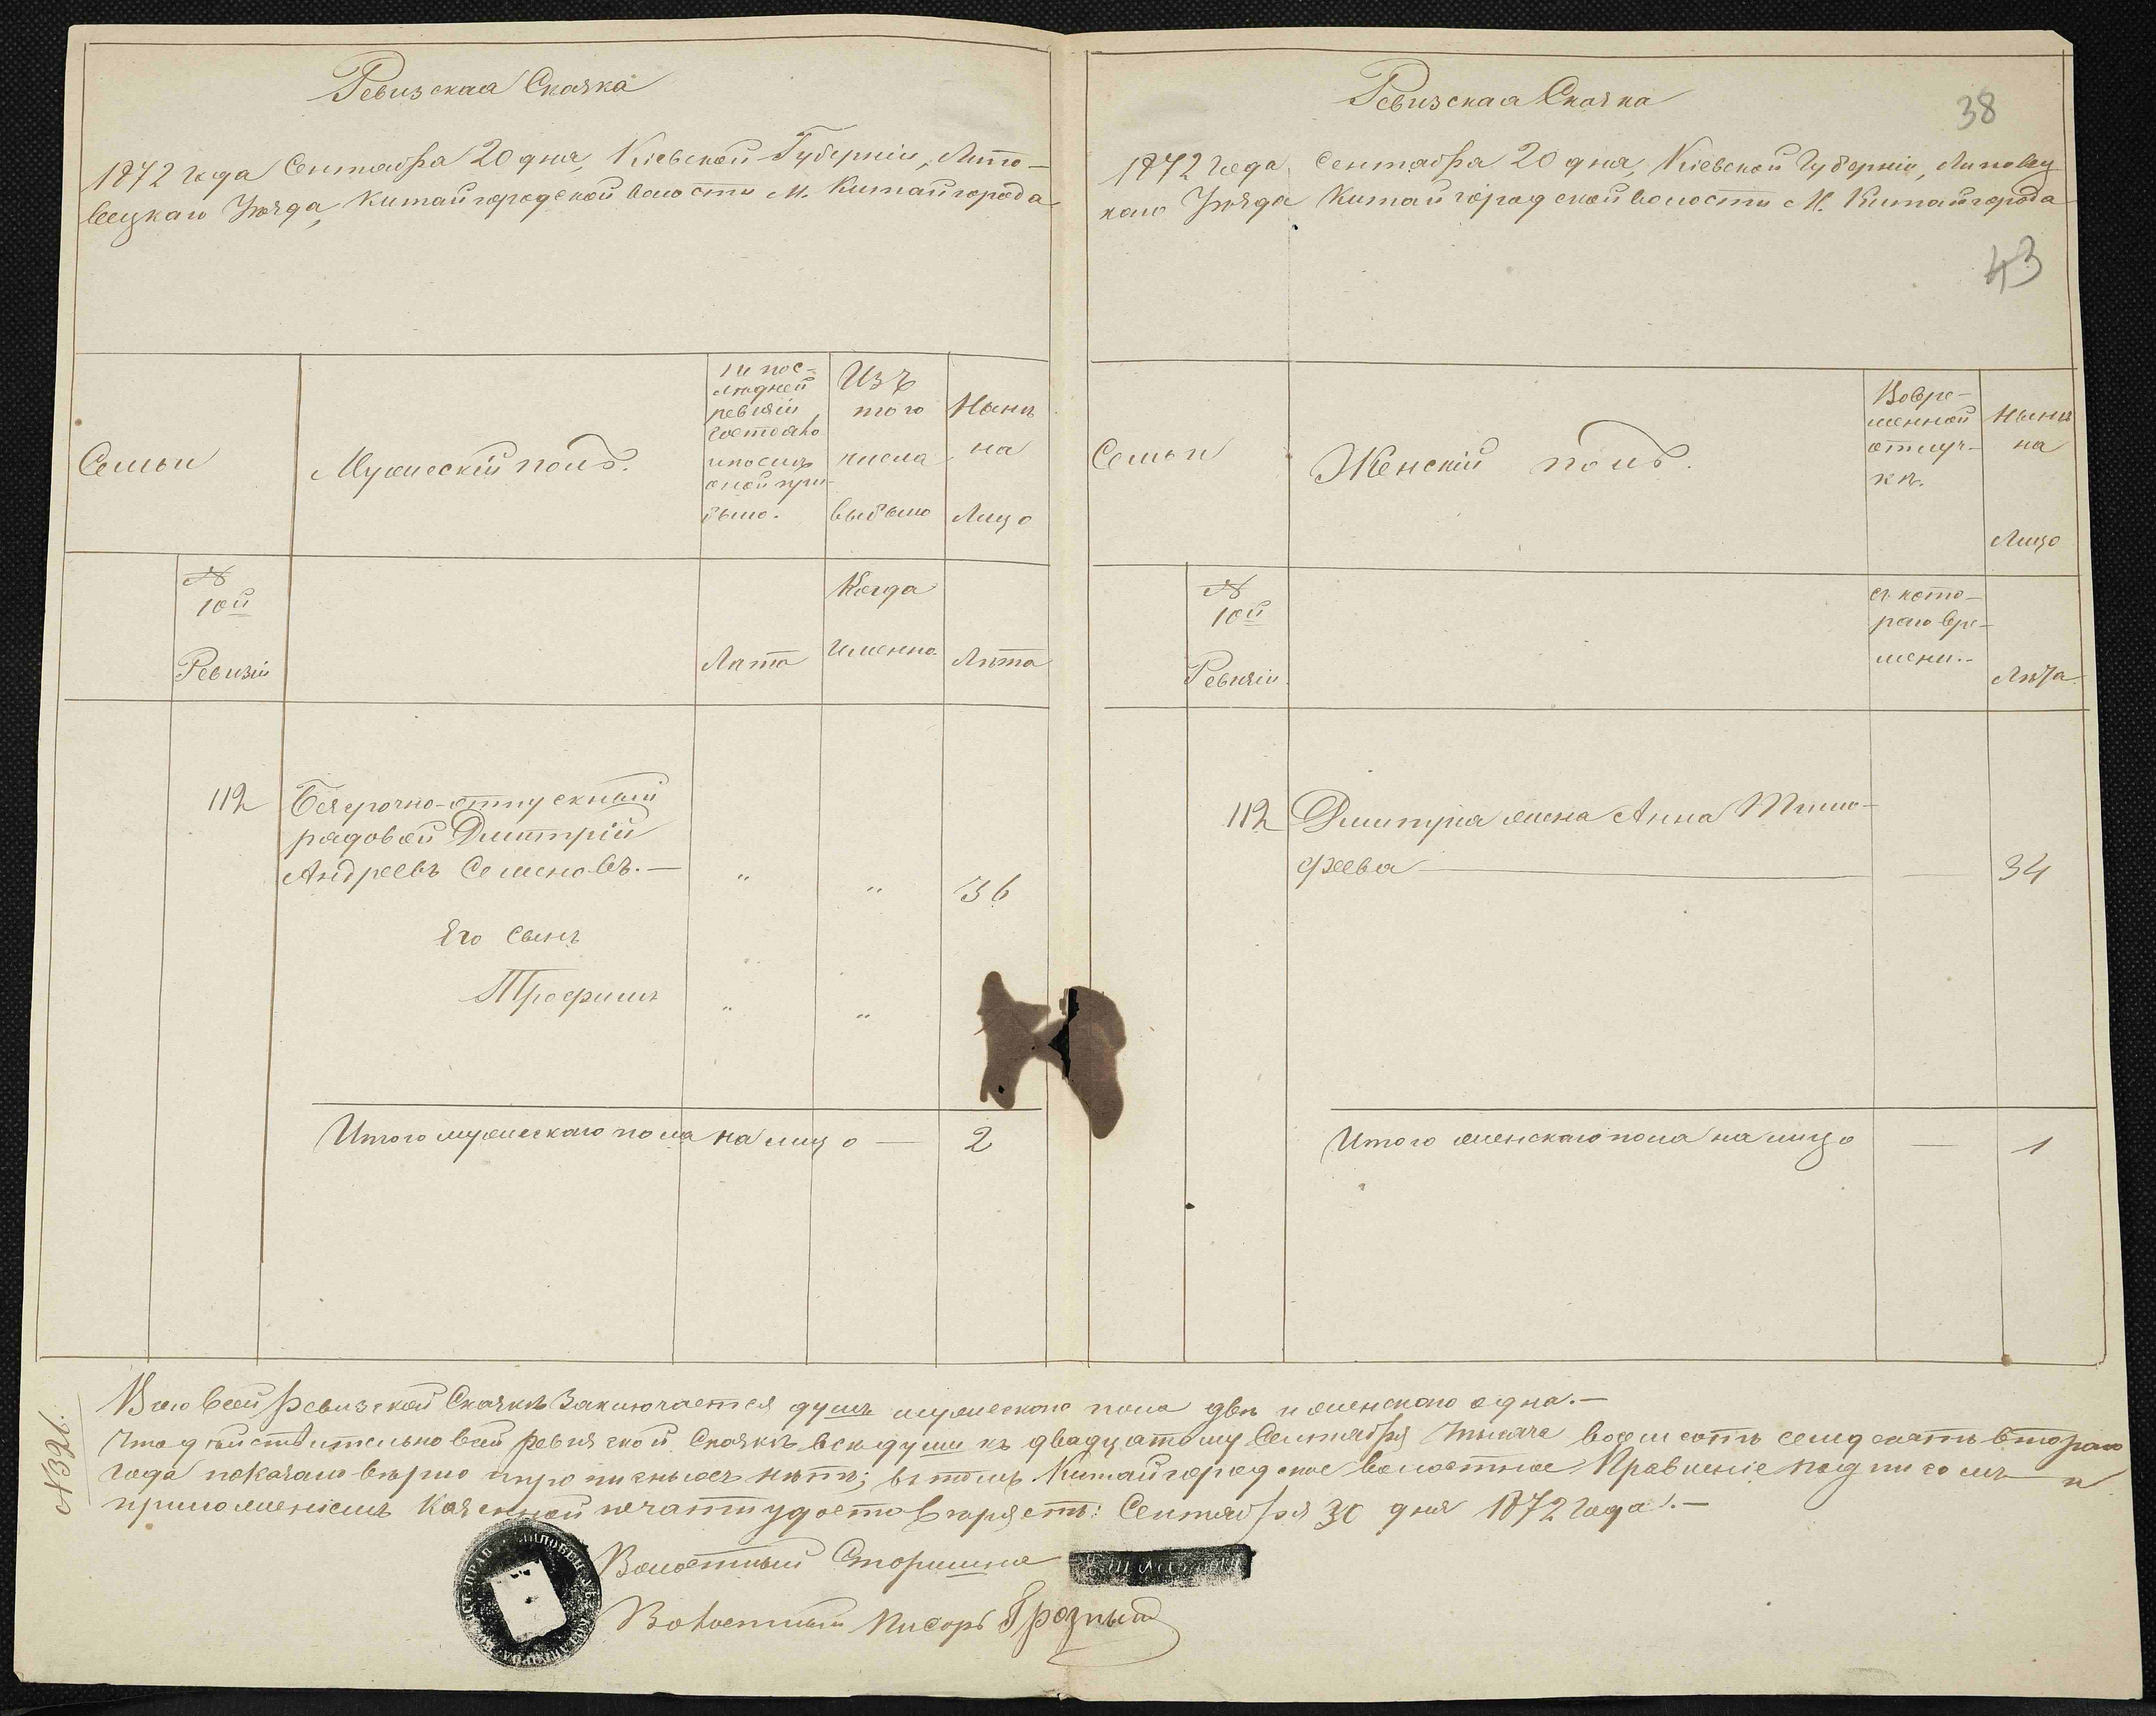 Ревизская Сказка
1872 года Сентября 20 дня, Кіевской Губерніи, Липо-
вецкаго Уѣзда, Китайгородской волости М. Китайгорода
Семьи
Мужескій полъ.
По пос-
лѣдней
ревизіи
состояло
и послѣ
оной при-
было.
Изъ
того
числа
выбыло
Нынѣ
на
Лицо
№
10й
Ревизіи
Лѣта
Когда
именно
Лѣта
112
Безсрочно-отпускный
рядовой Дмитрій
Андреевъ Семеновъ.— " " 36
Его Сынъ
Трофимъ " "
Итого мужескаго пола на лицо — 2
Ревизская Сказка
38
1872 года Сентября 20 дня, Кіевской Губерніи, Липовец
каго Уѣзда Китайгородской волости М. Китайгорода
43
Семьи
Женскій полъ.
Вовре-
менной
отлуч-
кѣ.
Нынѣ
на
Лицо
№
10й
Ревизіи
съ кото-
раго вре-
мени.-
Лѣта.
112
Дмитрія жена Анна Тимо-
феева — — 34
Итого женскаго пола на лицо — 1
№ 326.
Въ сей Ревизской Сказкѣ Заключается душъ мужескаго пола двѣ и женскаго одна.—
Что дѣйствительно всей ревизской Сказкѣ всѣ души къ двадцатому Сентября тысяча восемьсотъ семдесятъ втораго
года показано вѣрно и прописныхъ нѣтъ; въ томъ Китайгородское волостное Правленіе подписомъ и
приложеніемъ Казенной печати удостовѣряетъ: Сентября 30 дня 1872 года.—
Волостный Старшина
Волостный Писарь Грозный